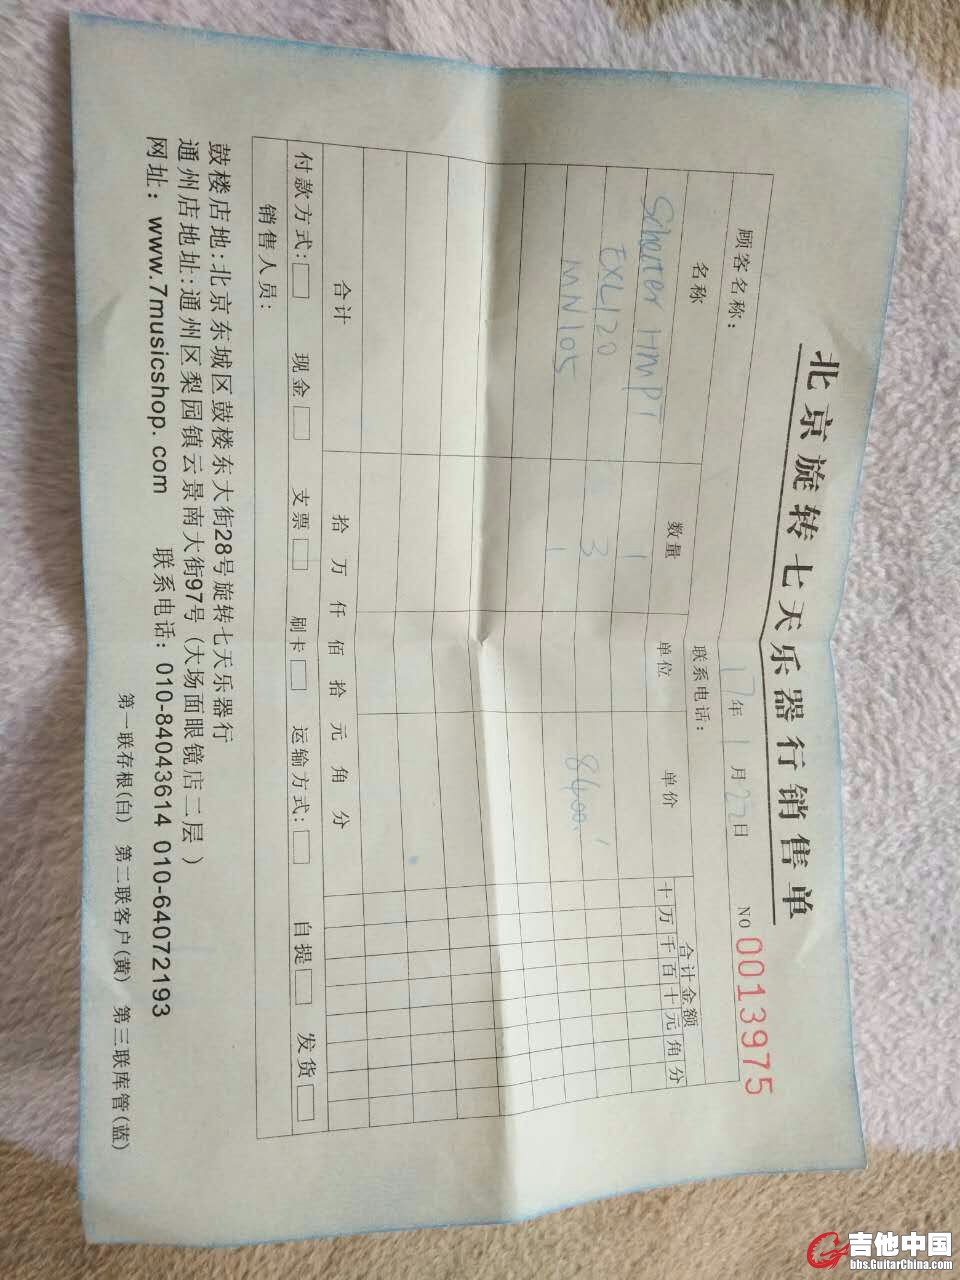 北京旋转七天乐器行销售单
17年1月22日 NO 0013975
顾客名称： 联系电话：
名称 数量 单位 单价 合计金额
十万千百十元角分
Schecter HMPT 1
EXL120 3 8400
MN105 1
合计 拾 万 仟 佰 拾 元 角 分
付款方式： 现金 支票 刷卡 运输方式： 自提 发货
销售人员：
鼓楼店地:北京东城区鼓楼东大街28号旋转七天乐器行
通州店地址:通州区梨园镇云景南大街97号(大场面眼镜店二层)
网址：www.7musicshop.com 联系电话: 010-84043614 010-64072193
第一联存根(白) 第二联客户(黄) 第三联库管(蓝)
吉他中国
bbs.GuitarChina.com